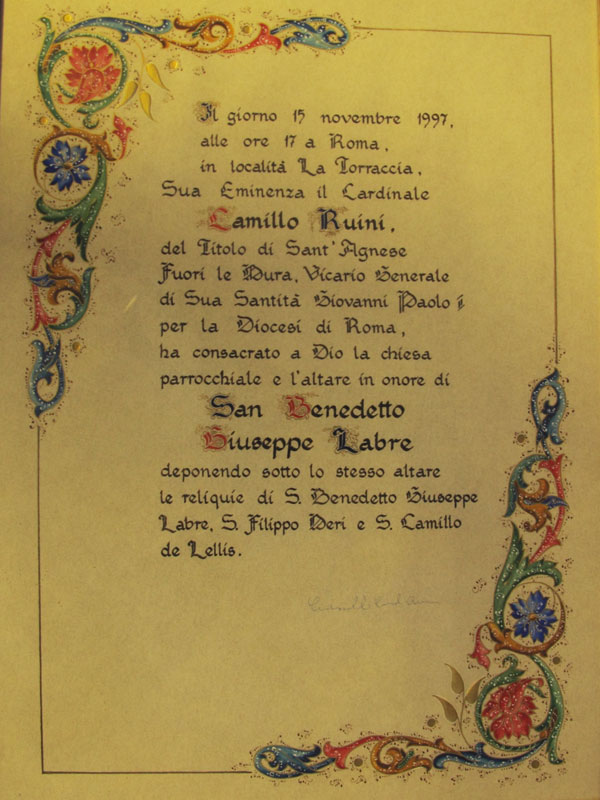 Il giorno 15 novembre 1997,
alle ore 17 a Roma,
in località La Torraccia,
Sua Eminenza il Cardinale
Camillo Ruini,
del Titolo di Sant'Agnese
Fuori le Mura, Vicario Generale
di Sua Santità Giovanni Paolo II
per la Diocesi di Roma,
ha consacrato a Dio la chiesa
parrocchiale e l'altare in onore di
San Benedetto
Giuseppe Labre
deponendo sotto lo stesso altare
le reliquie di S. Benedetto Giuseppe
Labre, S. Filippo Neri e S. Camillo
de Lellis.